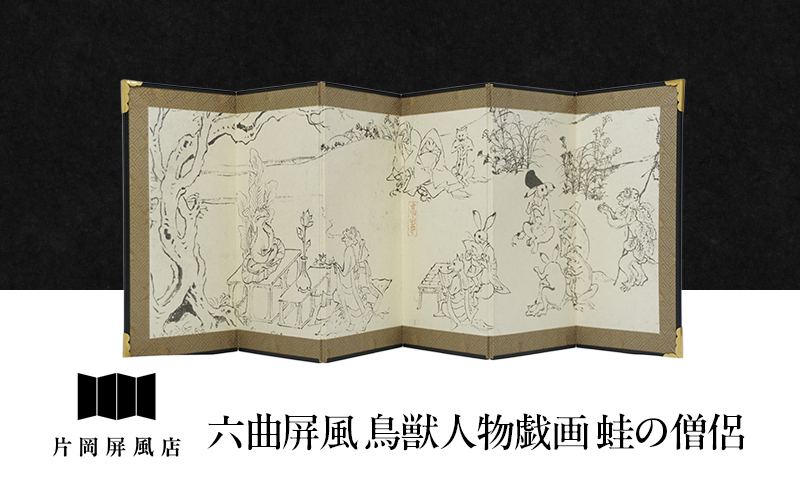 片岡屏風店
六曲屏風 鳥獣人物戯画 蛙の僧侶